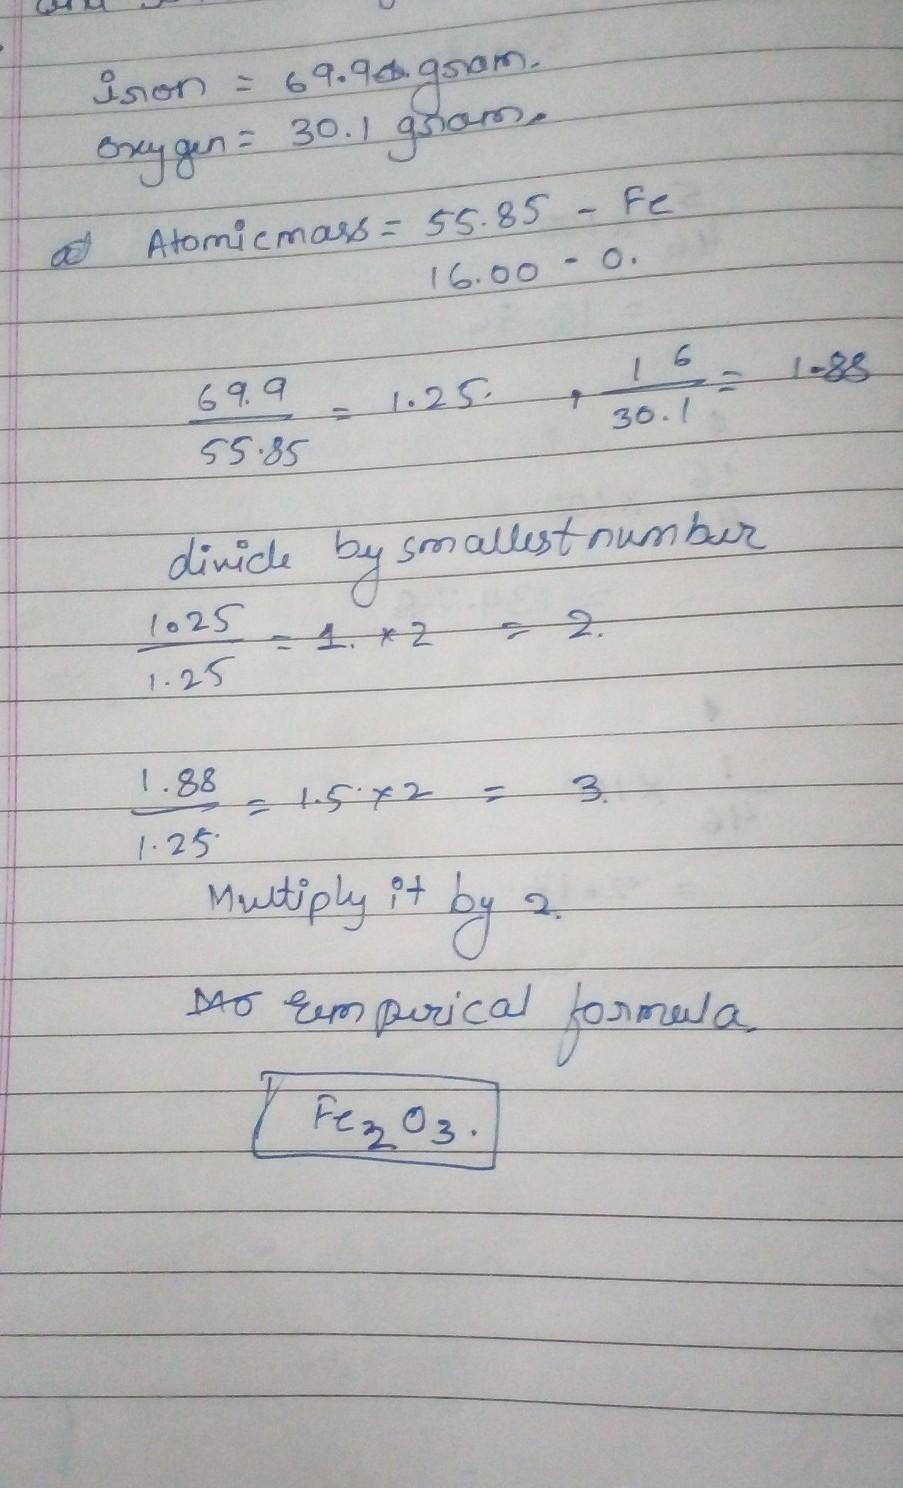 iron = 69.9 gram.
oxygen = 30.1 gram.
a) Atomic mass = 55.85 - Fe
16.00 - O.
69.9/55.85 = 1.25. , 16/30.1 = 1.88
divide by smallest number
1.25/1.25 = 1. × 2 = 2.
1.88/1.25 = 1.5 × 2 = 3.
Multiply it by 2.
Empirical formula.
Fe2O3.